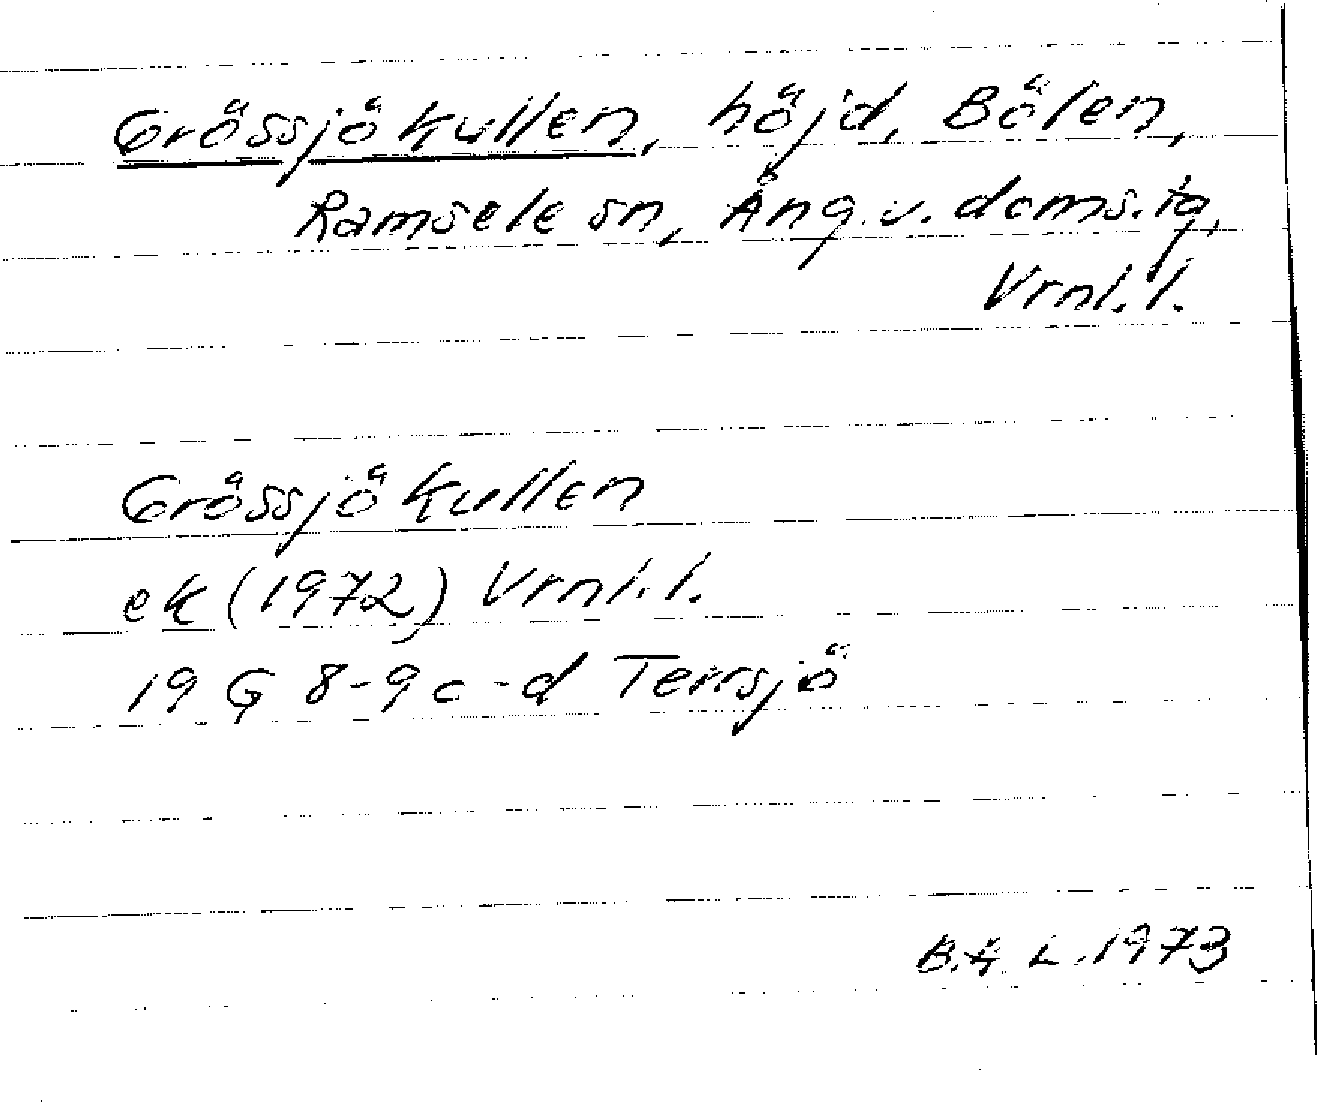 Grössjökullen, höjd, Bölen,
Ramsele sn, Ång.v. doms.tg,
Vrnl. l.
Grössjökullen
ek (1972) Vrnl. l.
19 G 8-9 c-d Terrsjö
L. 1973